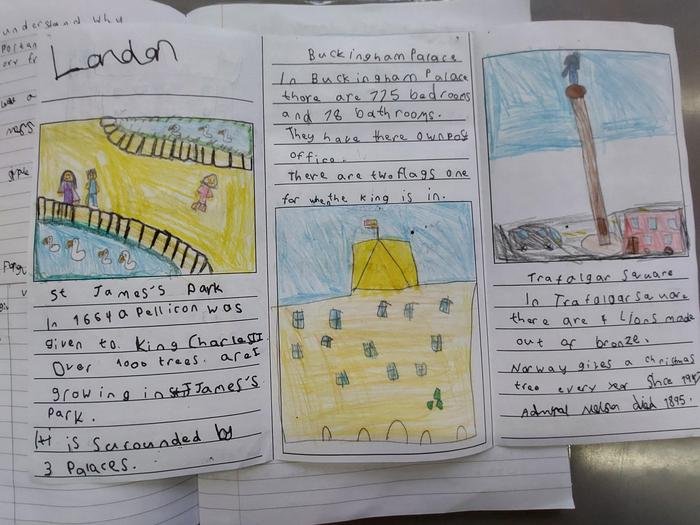 understand why
London
St James's Park
In 1664 a Pellicon was
given to King Charles II
Over 1000 trees. are
growing in James's
Park.
It is surounded by
3 Palaces.
Buckingham Palace
In Buckingham Palace
there are 775 bedrooms
and 78 bathrooms.
They have there own post
office.
There are two flags one
for when the king is in.
Trafalgar Square
In Trafalgar Square
there are 4 Lions made
out of bronze.
Norway gives a christmas
tree every year since
Admiral Nelson died 1895.